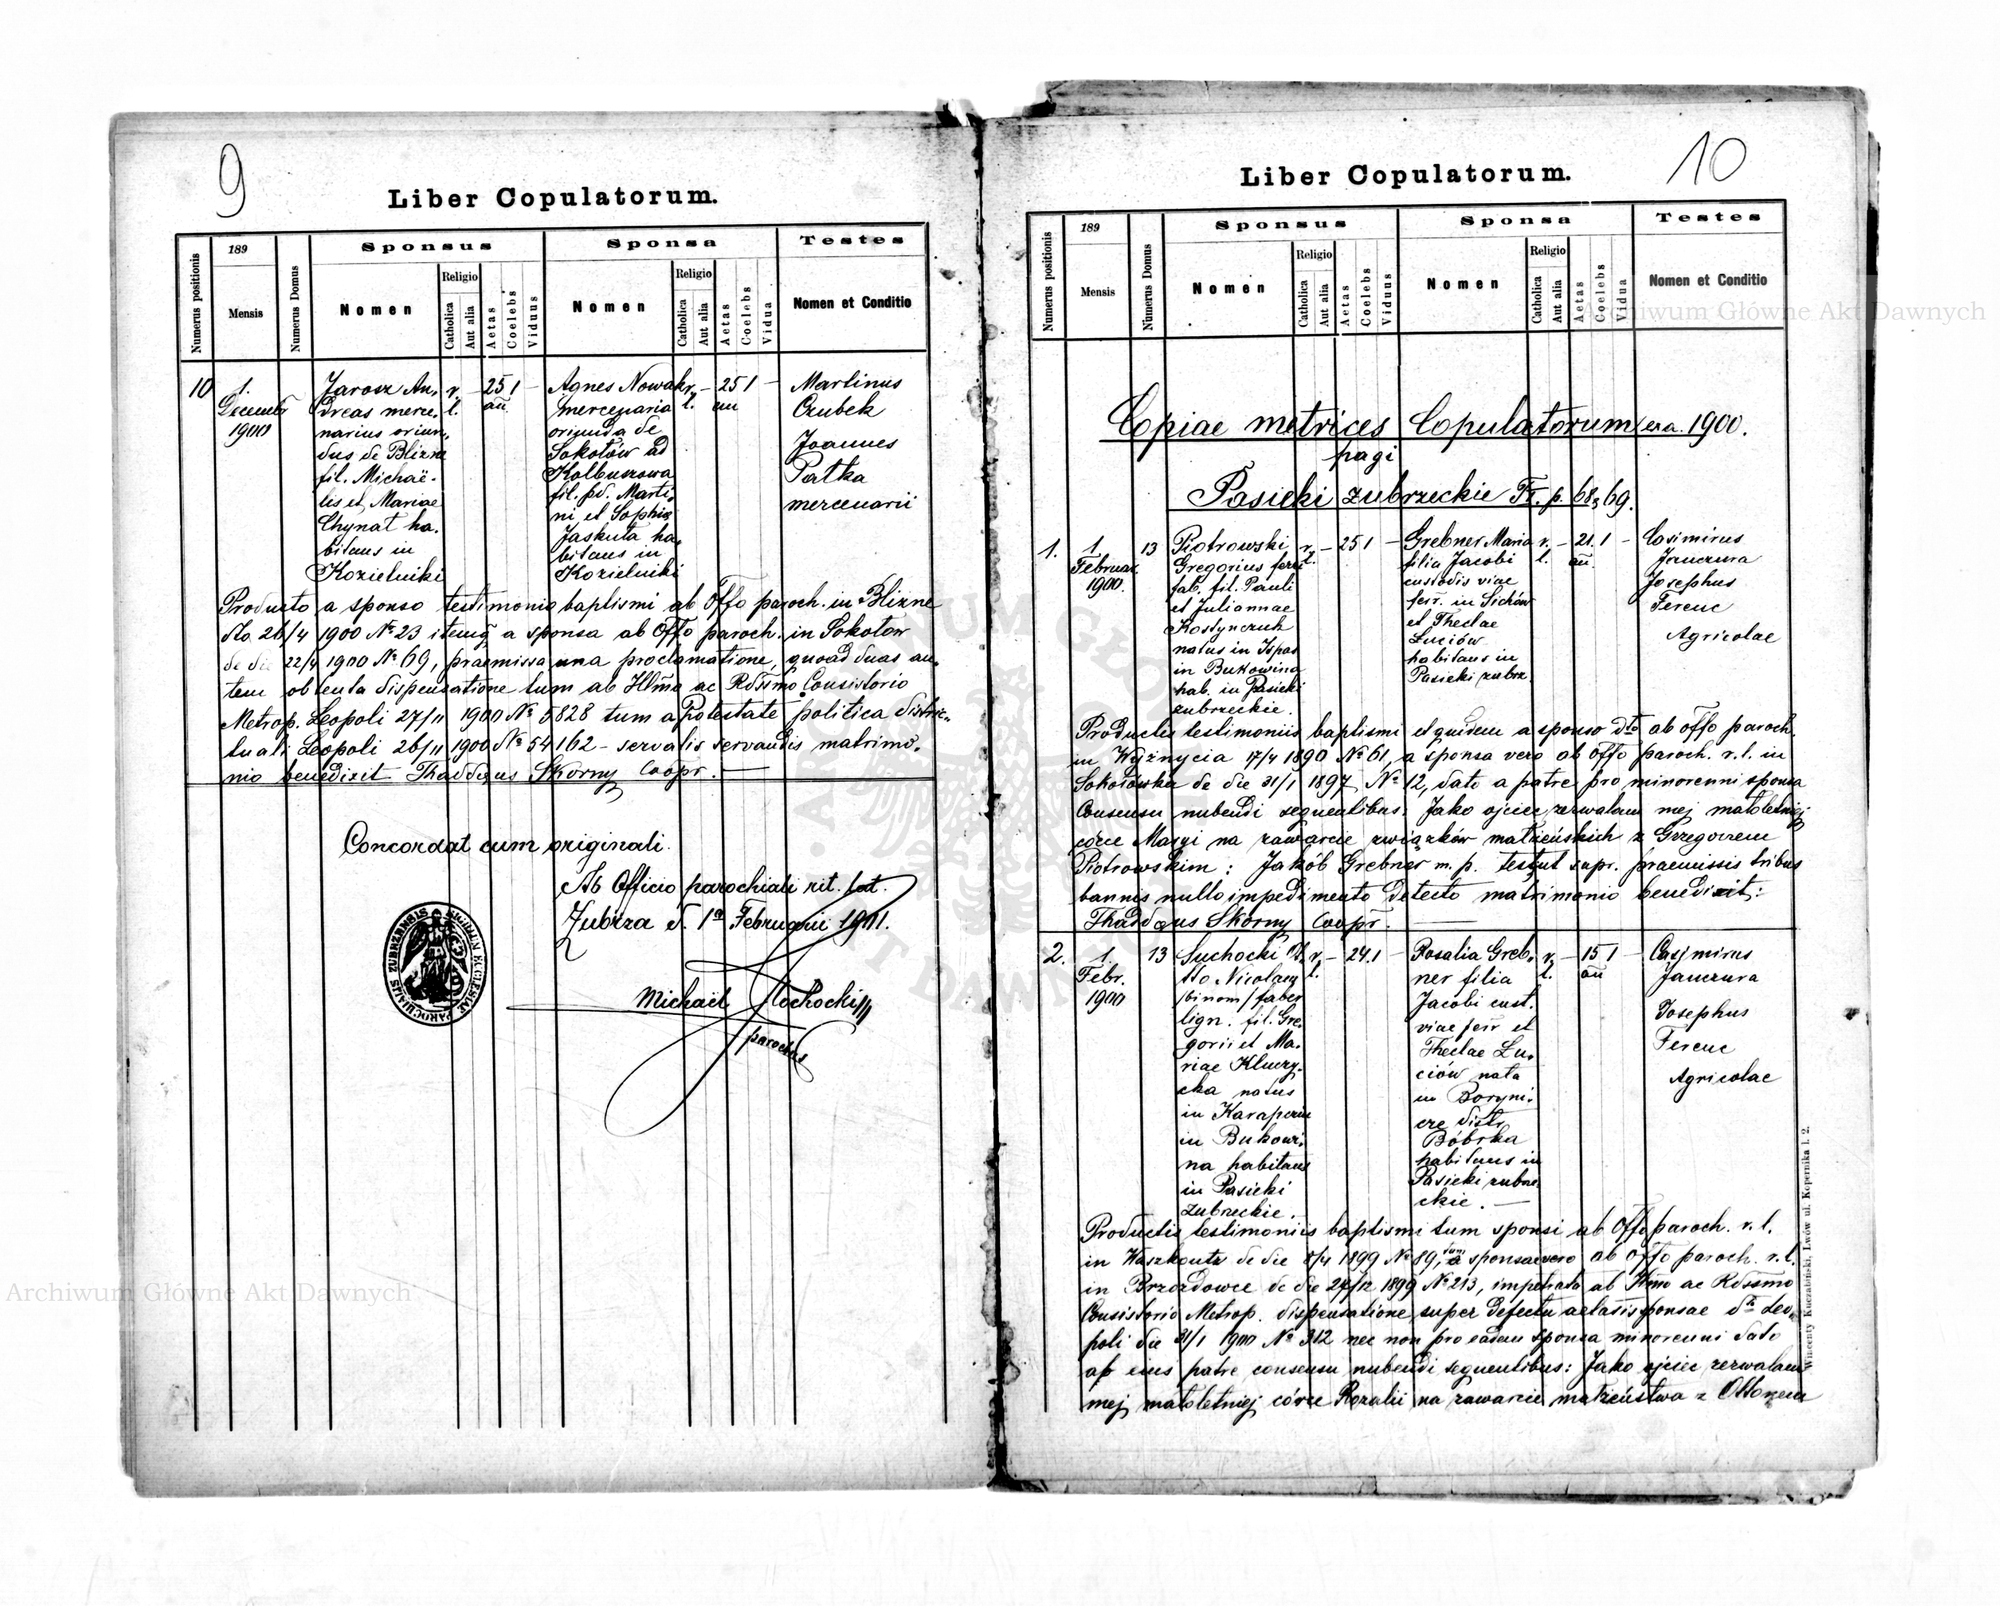 9
Liber Copulatorum.
Numerus positionis
189
Mensis
Numerus Domus
Sponsus
Nomen
Religio
Catholica
Aut alia
Aetas
Coelebs
Viduus
Sponsa
Nomen
Religio
Catholica
Aut alia
Aetas
Coelebs
Vidua
Testes
Nomen et Conditio
10
1.
Decembr
1900
Jarosz An,
dreas merce,
narius oriun,
dus de Blizne
fil. Michaë-
lis et Mariae
Chynat ha,
bitans in
Kozielniki
r.
l.
– 25 1 –
an
Agnes Nowak
mercenaria
oriunda de
Sokołów ad
Kolbuszowa
fil. pd. Marti,
ni et Sophia
Jaskuta ha,
bitans in
Kozielniki
r.
l.
– 25 1 –
an
Martinus
Czubek
Joannes
Patka
mercenarii
Producto a sponso testimonio baptismi ab Offo paroch. in Blizne
dto. 26/4 1900 No 23 itemq a sponsa ab Offo paroch. in Sokołow
de die 22/4 1900 No 69, praemissa una proclamatione, quoad duas au,
tem obtenta dispensatione tum ab Illmo ac Rdssmo Consistorio
Metrop. Leopoli 27/11 1900 No 5828 tum a Potestate politica distric,
tuali Leopoli 26/11 1900 No 54162 – servatis servandis matrimo,
nio benedixit Thaddaeus Skorny Coopr. —
Concordat cum originali.
Ab Officio parochiali rit. lat.
Zubrza d. 1a Februarii 1901.
SIGILLUM ECCLESIAE PAROCHIALIS ZUBRZENSIS
Michaël
parochus
10
Liber Copulatorum.
Numerus positionis
189
Mensis
Numerus Domus
Sponsus
Nomen
Religio
Catholica
Aut alia
Aetas
Coelebs
Viduus
Sponsa
Nomen
Religio
Catholica
Aut alia
Aetas
Coelebs
Vidua
Testes
Nomen et Conditio
Copiae metrices Copulatorum ex a. 1900.
pagi
Pasieki zubrzeckie p. 68, 69.
1.
1.
Februar.
1900.
13
Piotrowski
Gregorius ferri
fab. fil. Pauli
et Juliannae
Kostynczuk
natus in Ispas
in Bukowina
hab. in Pasieki
zubrzeckie.
r.
l.
– 25 1 –
Grebner Maria
filia Jacobi
custodis viae
ferr. in Sichów
et Theclae
Luciów
habitans in
Pasieki zubrz.
r.
l.
– 21. 1 –
an.
Casimirus
Janczura
Josephus
Ferenc
Agricolae
Productis testimoniis baptismi et quidem a sponso dto ab offo paroch.
in Wyżnycia 17/4 1890 No 61, a sponsa vero ab Offo paroch. r. l. in
Sokołówka de die 31/1 1897 No 12, dato a patre pro minorenni sponsa
Consensu nubendi sequentibus: Jako ojciec zezwalam mej małoletniej
córce Maryi na zawarcie związków małżeńskich z Grzegorzem
Piotrowskim: Jakób Grebner m. p. testut supr. praemissis tribus
bannis nullo impedimento detecto matrimonio benedixit:
Thaddaeus Skorny Coopr. —
2.
1.
Febr.
1900
13
Suchocki Ot,
to Nicolaus
/binom/ faber
lign. fil. Gre,
gorii et Ma,
riae Kluczy,
cka natus
in Karapcziu
in Bukowi,
na habitans
in Pasieki
zubrzeckie.
r.
l.
– 24. 1 –
Rosalia Greb,
ner filia
Jacobi cust.
viae ferr et
Theclae Lu,
ciów nata
in Boryni,
cze distr.
Bóbrka
habitans in
Pasieki zubrze
ckie. —
r.
l.
– 15 1 –
an
Casimirus
Janczura
Josephus
Ferenc
Agricolae
Productis testimoniis baptismi tum sponsi ab Offo paroch. r. l.
in Waszkoutz de die 8/4 1899 No 89, tum a sponsae vero ab offo paroch. r. l.
in Brzozdowce de die 27/12 1899 No 213, impetrata ab Illmo ac Rdssmo
Consistorio Metrop. dispensatione super defectu aetatis sponsae dto Leo,
poli die 31/1 1900 No 312 nec non pro eadem sponsa minorenni dato
ab eius patre consensu nubendi sequentibus: Jako ojciec zezwalam
mej małoletniej córce Rozalii na zawarcie małżeństwa z Ottonem
Wincenty Kuczabiński, Lwów ul. Kopernika l. 2.
Archiwum Główne Akt Dawnych
Archiwum Główne Akt Dawnych
ARCHIWUM GŁÓWNE AKT DAWNYCH